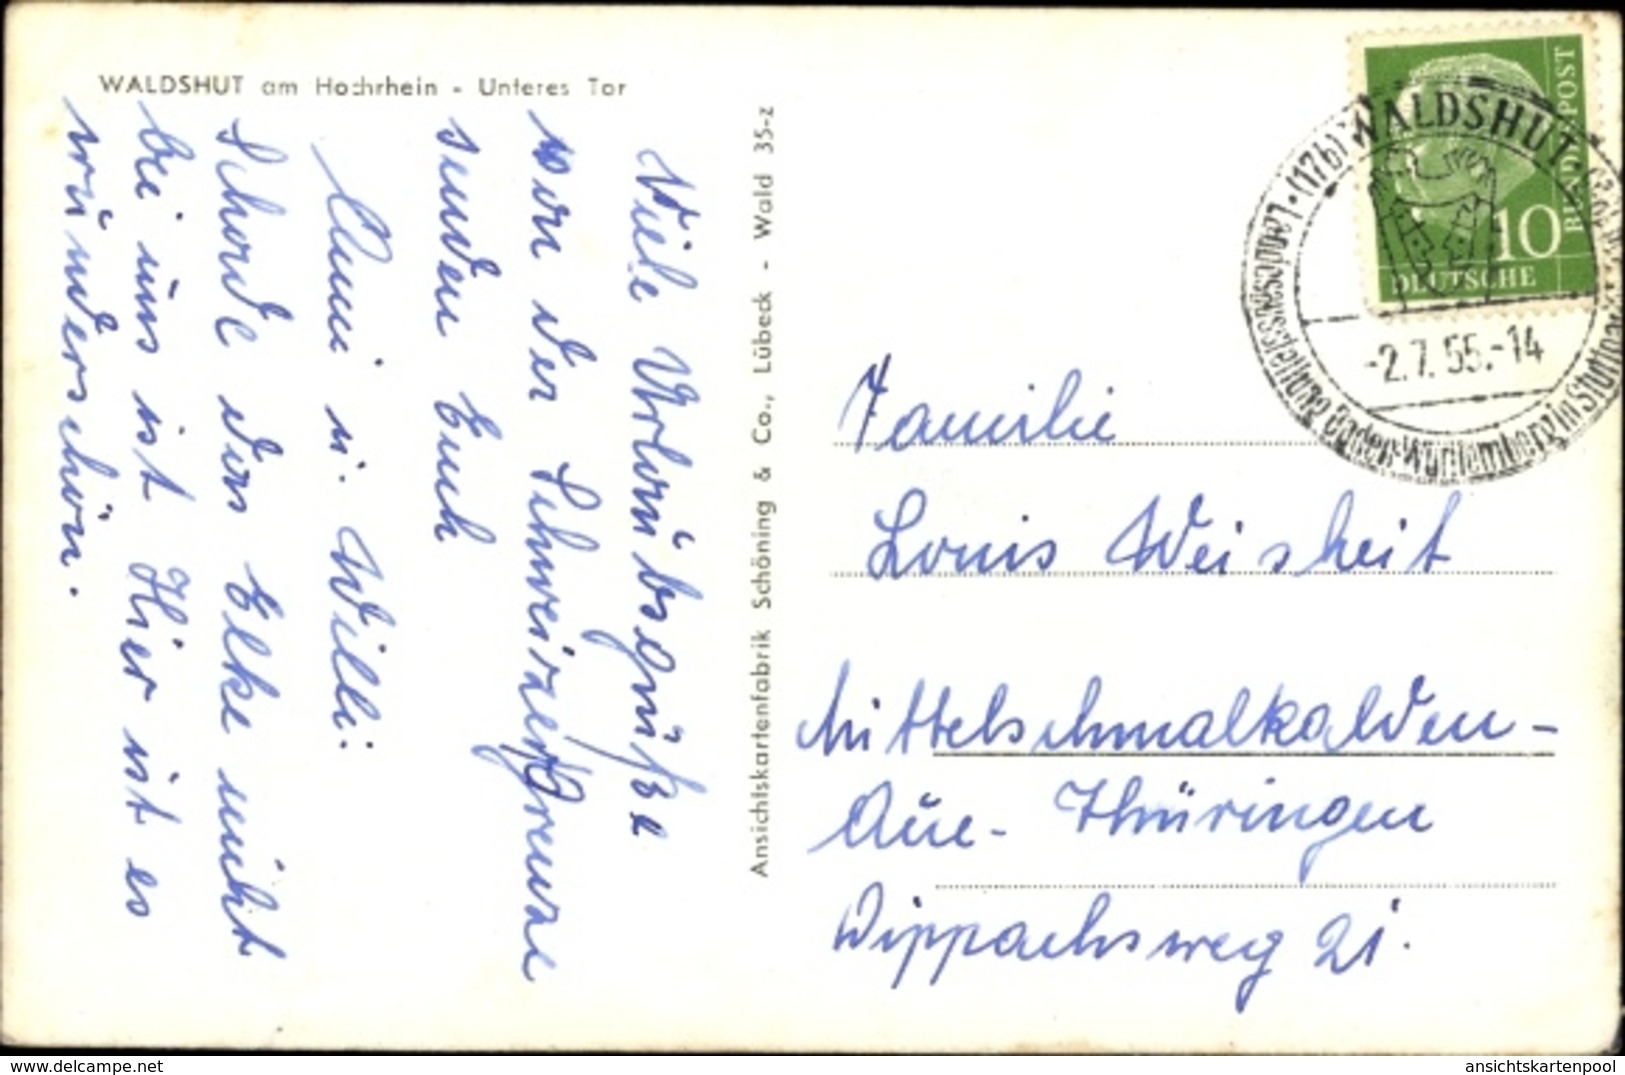 WALDSHUT am Hochrhein - Unteres Tor
Viele Urlaubsgrüße
von der Schweizer Grenze
senden Euch
u. Willi.
Schade das Elke nicht
bei uns ist Hier ist es
wunderschön.
Ansichtskartenfabrik Schöning & Co., Lübeck - Wald 35-z
(17b) WALDSHUT
Landesausstellung Baden-Württemberg in Stuttgart
-2.7.55.-14
DEUTSCHE
BUNDESPOST
10
Familie
Louis Weisheit
Mittelschmalkalden-
Aue- Thüringen
Wippachsweg 21.
www.delcampe.net
ansichtskartenpool